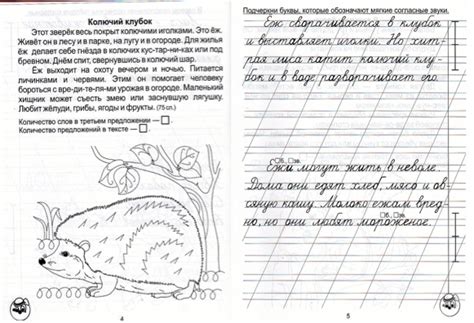 Колючий клубок
Этот зверёк весь покрыт колючими иголками. Это ёж.
Живёт он в лесу и в парке, на лугу и в огороде. Для жилья
ёж делает себе гнёзда в колючих кус-тар-ни-ках или под
бревном. Днём спит, свернувшись в колючий шар.
Ёж выходит на охоту вечером и ночью. Питается
личинками и червями. Этим он помогает человеку
бороться с вре-ди-те-ля-ми урожая в огороде. Маленький
хищник может съесть змею или заснувшую лягушку.
Любит жёлуди, грибы, ягоды и фрукты. (75 сл.)
Количество слов в третьем предложении —
Количество предложений в тексте —
4
Подчеркни буквы, которые обозначают мягкие согласные звуки.
Ёж сворачивается в клубок
и выставляет иголки. Но хит-
рая лиса катит колючий клу-
бок и в воде разворачивает его.
б., зв.
Ежи могут жить в неволе.
Дома они едят хлеб, мясо и ов-
сяную кашу. Молоко ежам вред-
но, но они любят мороженое.
б., зв.
5